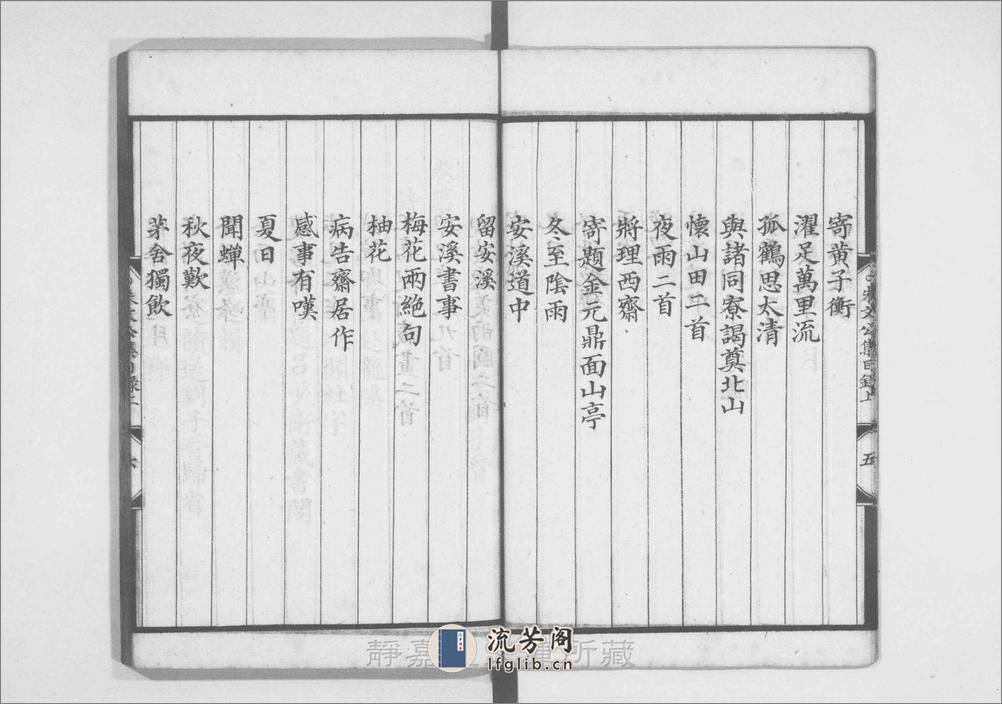 寄黄子衡
濯足萬里流
孤鶴思太清
與諸同寮謁奠北山
懷山田 首
夜雨二首
將理西齋
寄題金元鼎面山亭
冬至陰雨
安溪道中
留安溪
安溪書事
梅花兩絶句
柚花
病告齋居作
感事有嘆
夏日
聞蟬
秋夜歎
茅舍獨飲
文公集目錄上
五
流芳阁
lfglib.cn
靜嘉 所藏